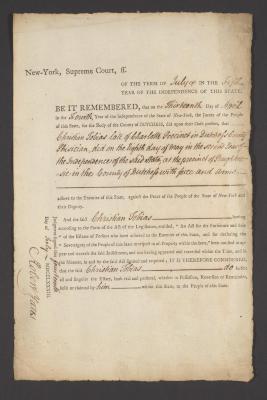 New-York, Supreme Court, ss.
OF THE TERM OF July IN THE Fifth
YEAR OF THE INDEPENDENCE OF THIS STATE.
BE IT REMEMBERED, that on the Thirteenth Day of April
in the Fourth Year of the Independence of the State of New-York, the Jurors of the People
of this State, for the Body of the County of DUTCHESS, did upon their Oath present, that
Christian Tobias late of Charlotte Precinct in Dutchess County
Physician, did on the Eighth day of May in the second Year of
the Independence of the said state, at the precinct of
in the County of Dutchess with force and arms
adhere to the Enemies of this State, against the Peace of the People of the State of New-York and
their Dignity.
And the said Christian Tobias having
according to the Form of the Act of the Legislature, entitled, "An Act for the Forfeiture and Sale
"of the Estates of Persons who have adhered to the Enemies of this State, and for declaring the
"Sovereignty of the People of this State in respect to all Property within the same,"
IT IS THEREFORE CONSIDERED,
that the said Christian Tobias do forfeit
all and singular the Estate, both real and personal, whether in Possession, Reversion or Remainder,
held or claimed by him within this State, to the People of this State.
Day of July